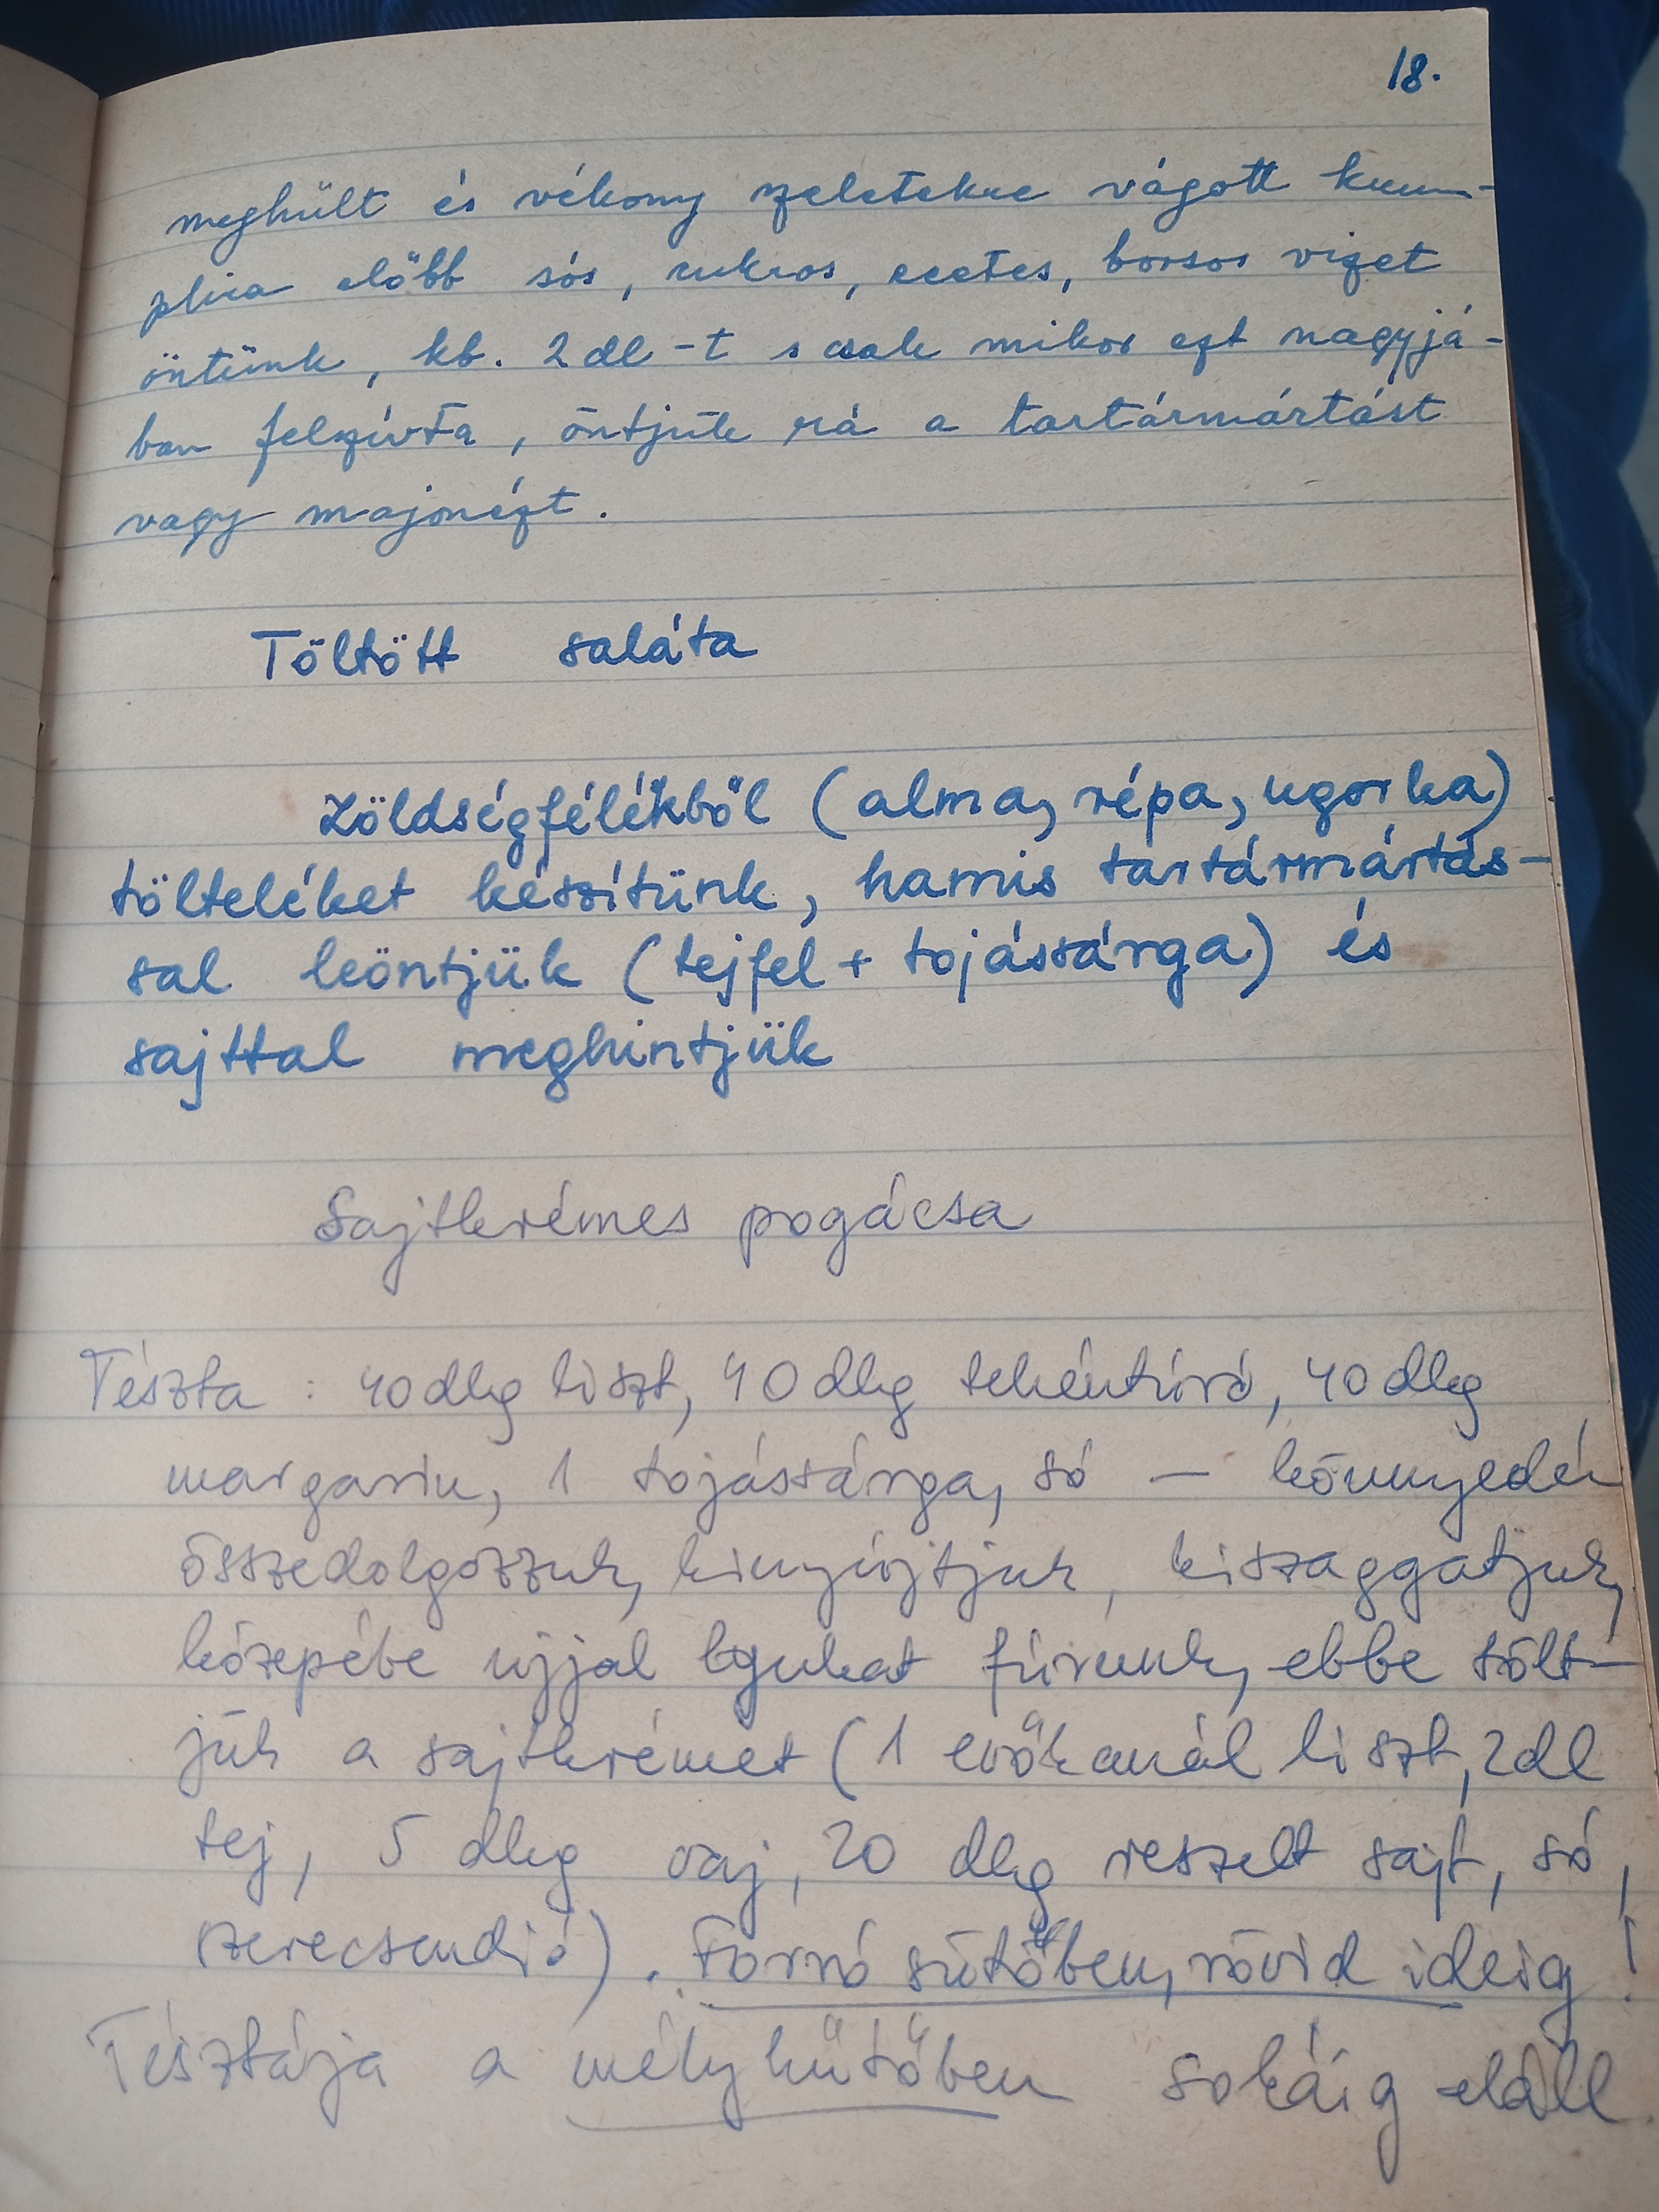 18.
meghült és vékony szeletekre vágott krum-
plira előbb sós, cukros, ecetes, borsos vizet
öntünk, kb. 2 dl-t s csak mikor ezt nagyjá-
ban felszívta, öntjük rá a tartármártást
vagy majonézt.
Töltött saláta
Zöldségfélékből (alma, répa, ugorka)
tölteléket készítünk, hamis tartármártás-
sal leöntjük (tejfel + tojássárga) és
sajttal meghintjük
Sajtkrémes pogácsa
Tészta: 40 dkg liszt, 40 dkg tehéntúró, 40 dkg
margarin, 1 tojássárga, só — könnyedén
összedolgozzuk, kinyújtjuk, kiszaggatjuk,
közepébe ujjal lyukat fúrunk, ebbe tölt-
jük a sajtkrémet (1 evőkanál liszt, 2dl
tej, 5 dkg vaj, 20 dkg reszelt sajt, só,
szerecsendió). Forró sütőben, rövid ideig!
Tésztája a mélyhűtőben sokáig eláll.